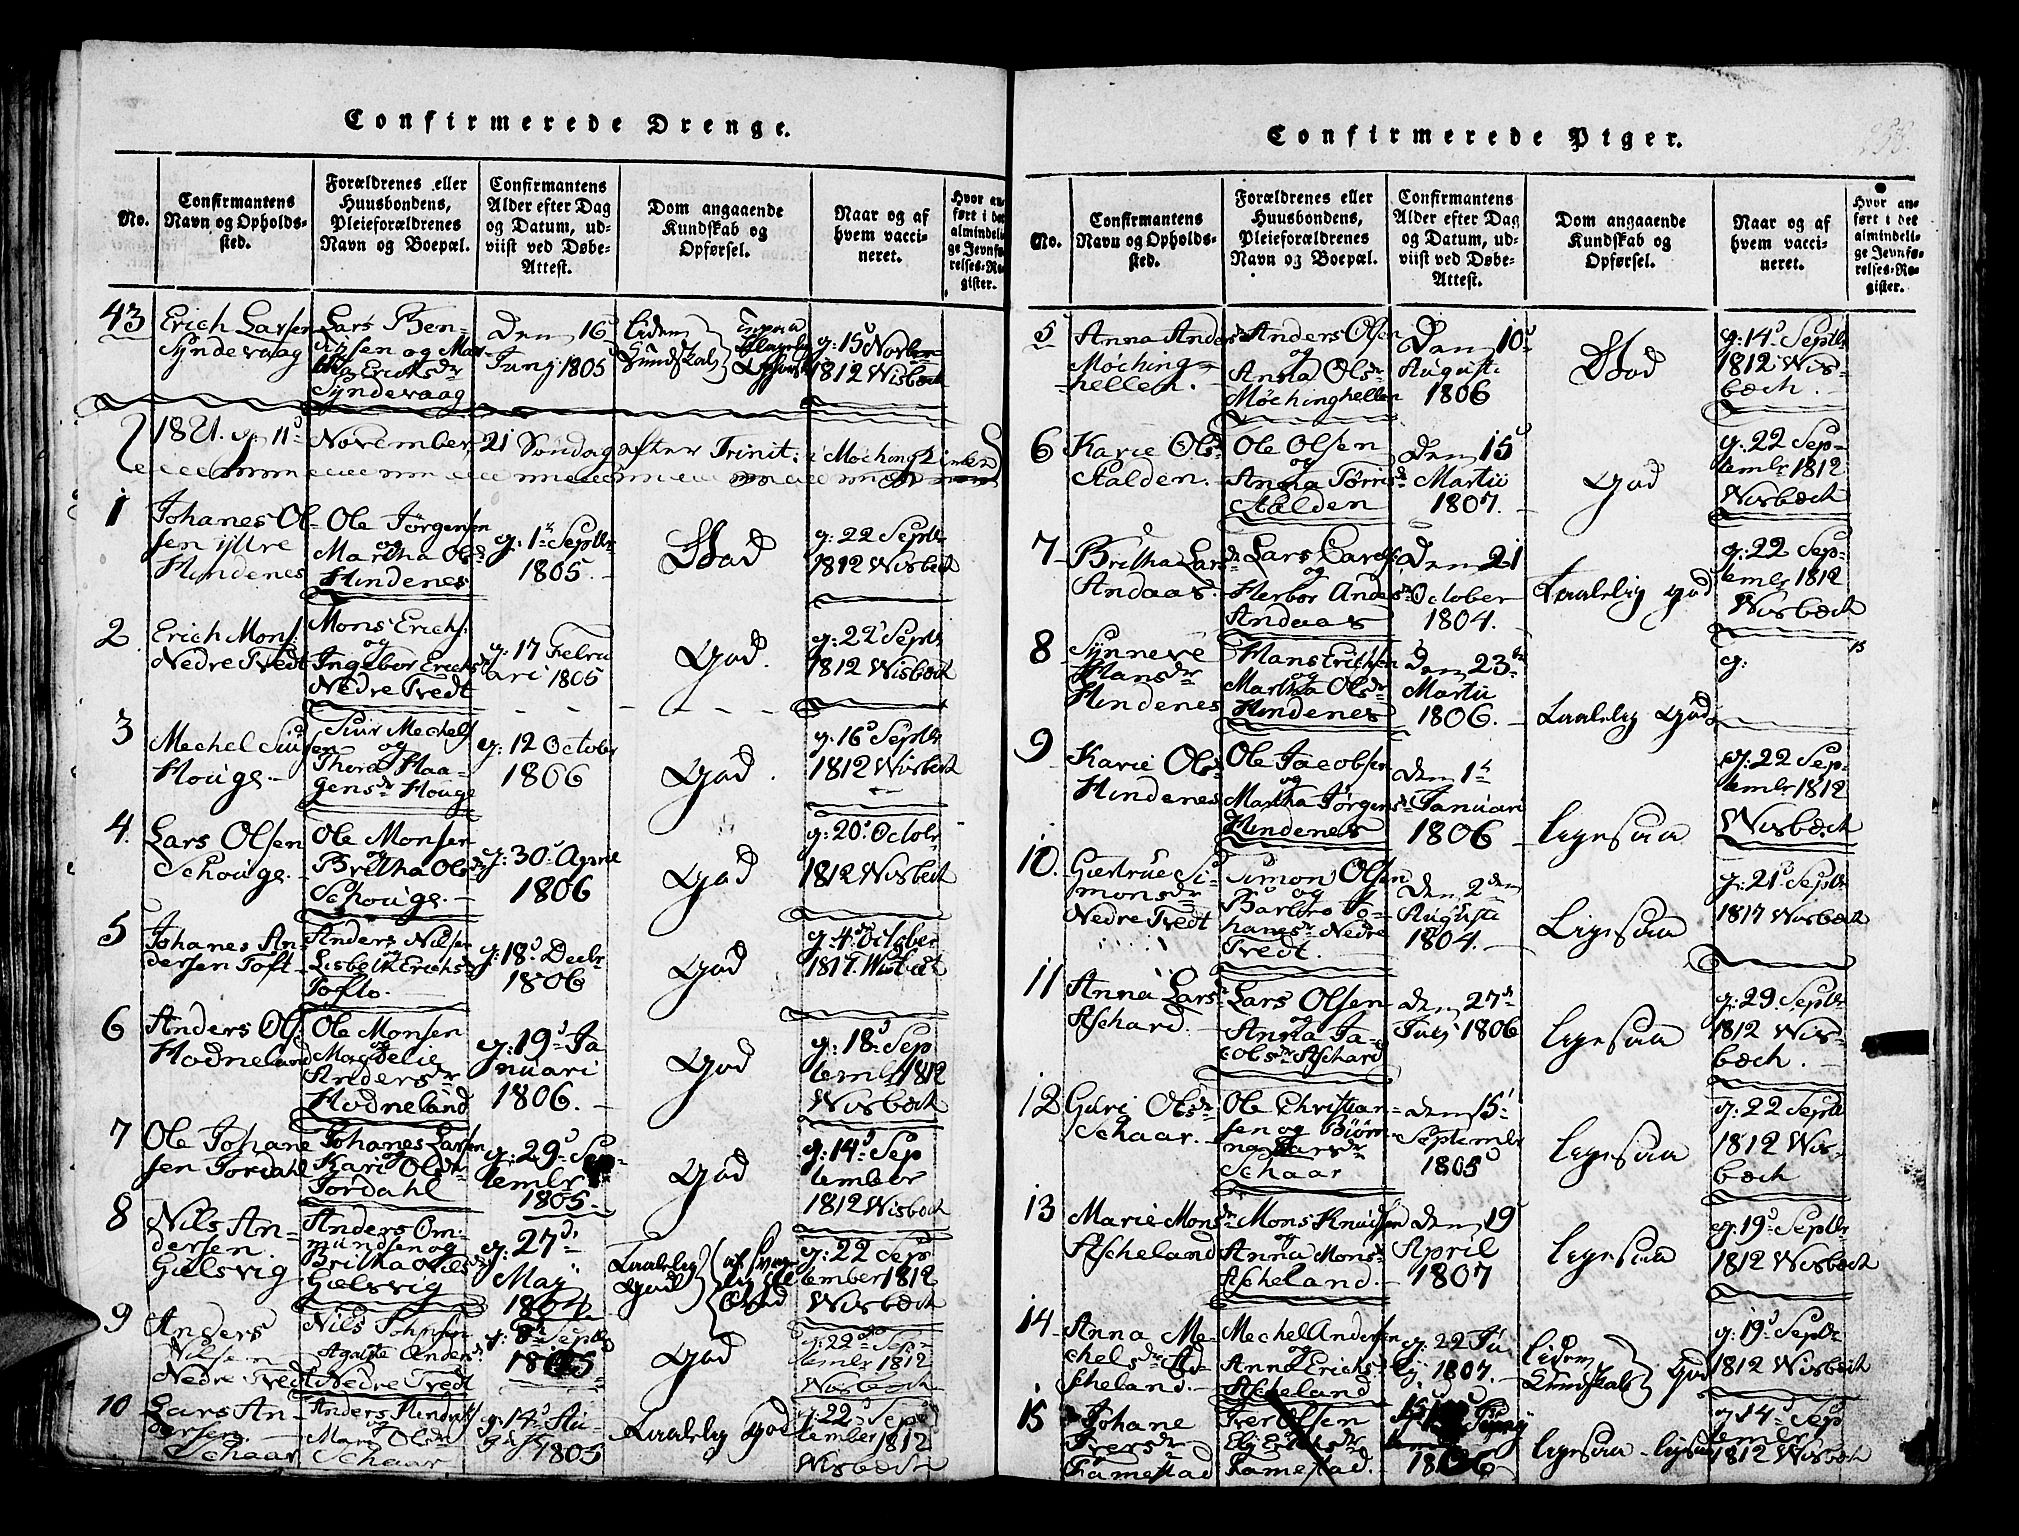 Confirmerede Drenge.
No.
Confirmantens
Navn og Opholds-
sted.
Forældrenes eller
Huusbondens,
Pleieforældrenes
Navn og Boepæl.
Confirmantens
Alder efter Dag
og Datum, ud-
viist ved Døbe-
Attest.
Dom angaaende
Kundskab og
Opførsel.
Naar og af
hvem vacci-
neret.
Hvor an-
ført i det
almindeli-
ge Jevnfø-
relses-Re-
gister.
43
Erich Larsen
Syndevaag
Lars Ben-
Ericksdr
Syndevaag
Den 16
Junj 1805
Liden
Kundskab
g: 15 Novbr
1812 Wisbech
1821. g: 11 November, 21 Søndag after Trinit:
1
Johanes Ol-
sen ÿttre
Hindenes
Ole Jørgensen
og
Martha Olsdr
Hindenes
g: 1 Septbr
1805.
God
g: 22 Septbr
1812 Wisbech
2
Erich Mons:
Nedre Tvedt
Mons Erichs:
og
Ingebor Erichsdr
Nedre Tvedt
g: 17 Febru
ari 1805
God.
g: 22 Septbr
1812 Wisbech
3
Mechel Siur
sen
Houge
Siur Mechels
og
Thora Haa-
gensdr Houge
g: 12 Octobr
1806
God.
g: 16 Septbr
1812 Wisbech
4.
Lars Olsen
Schouge.
Ole Monsen
og
Britha Olsdr
Schouge.
g: 30 April
1806
God
g: 20 Octobr
1812 Wisbech
5
Johanes An-
dersen Toft
Anders Nilsen
og
Lisbeth Erichsdr
Tofto.
g: 18 Decbr
1806
God
g: 4 October
1817. Wisbech
6
Anders Ols:
Hodneland
Ole Monsen
og
Magdelie
Andersdr
Hodneland
g: 19 Ja
nuari
1806.
God
g: 18 Sep
tembr 1812
Wisbech
7
Ole Johane
sen Tordahl
Johanes Larsen
og
Kari Olsdr
Tordahl
g: 29 Sep-
tembr
1805.
God
g: 14 Sep
tember
1812 Wisbech
8
Nils An-
dersen.
Gielsvig
Anders Om-
mundsen og
Britha Nilsdr
Gielsvig
g: 27
May
1804
Taalelig
God
g: 22 Sep
tember 1812
Wisbech
9
Anders
Nilsen
Nedre Tvedt
Nils Johnsen
Agathe Andersdr
Nedre Tvedt
g: 8 Septbr
1805
God
g: 22 Sep-
tembr 1812
Wisbech
10
Lars An-
dersen
Schaar
Anders Hendrichs
og
Mari Olsdr
Schaar
g: 14 Au-
gust. 1805
Taalelig God
g: 22 Sep
tember 1812
Wisbech
Confirmerede Piger.
No.
Confirmantens
Navn og Opholds-
sted.
Forældrenes eller
Huusbondens,
Pleieforældrenes
Navn og Boepæl.
Confirmantens
Alder efter Dag
og Datum, ud-
viist ved Døbe-
Attest.
Dom angaaende
Kundskab og
Opførsel.
Naar og af
hvem vacci-
neret.
Hvor an-
ført i det
almindeli-
ge Jevnfø-
relses-Re-
gister.
5
Anna Anders
Møching-
hellen.
Anders Olsen
og
Anna Olsdr
Møchinghellen
Den 10
Augusti
1806
God
g: 14 Septbr
1812 Wis-
bech.
6
Karie Olsdr
Aalden.
Ole Olsen
og
Anna Tørrisdr
Aalden
Den 15
Martii
1807.
God
g: 22 Sep-
tembr 1812
Wisbech
7
Britha Larsdr
Andaas.
Lars Larsen
og
Herbor Andersdr
Andaas
Den 21
October
1804.
Taalelig god
g: 22 Sep-
tembr 1812
Wisbech
8
Synneve
Hansdr
Hindenes
Hans Erichsen
og
Martha Olsdr
Hindenes
Den 23
Martii
1806.
Taalelig God.
g:
9
Karie Olsdr
Hindenes
Ole Jacobsen
og
Martha Jørgensdr
Hindenes
Dem 1
Januari
1806
ligesaa
g: 22 Sep-
tembr 1812
Wisbech
10.
Giertrue Si-
monsdr
Nedre Tvedt
Simon Olsen
og
Barbro Jo-
hansdr Nedre
Tvedt.
den 2den
Augusti
1804.
Ligesaa
g: 21 Septbr
1817 Wisbech
11
Anna Larsdr
Aschard.
Lars Olsen
og
Anna Ja-
cobsdr Aschard
den 27
Julj 1806
ligesaa
g: 29. Septbr
1812 Wis-
bech.
12
Guri Olsdr
Schaar.
Ole Christian-
sen og Biør-
na Larsdr
Schaar
dem 15
Septembr
1805
ligesaa
g: 22 Septbr
1812 Wis-
bech
13
Marie Monsdr
Ascheland
Mons Knudsen
og
Anna Monsdr
Ascheland.
dem 19
April
1807
ligesaa
g: 19 Septbr
1812 Wisbech
14
Anna Me-
chelsdr A-
scheland.
Mechel Andersen
og
Anna Erichsdr
Ascheland
g: 22 Ju
lj 1807.
Liden
Kundskab
God
g: 19 Septbr
1812 Wisbech
15
Johane
Iversdr
Ramestad
Iver Olsen
Ramestad.
ligesaa
g: 14 Sep
tembr
1812 Wisbech